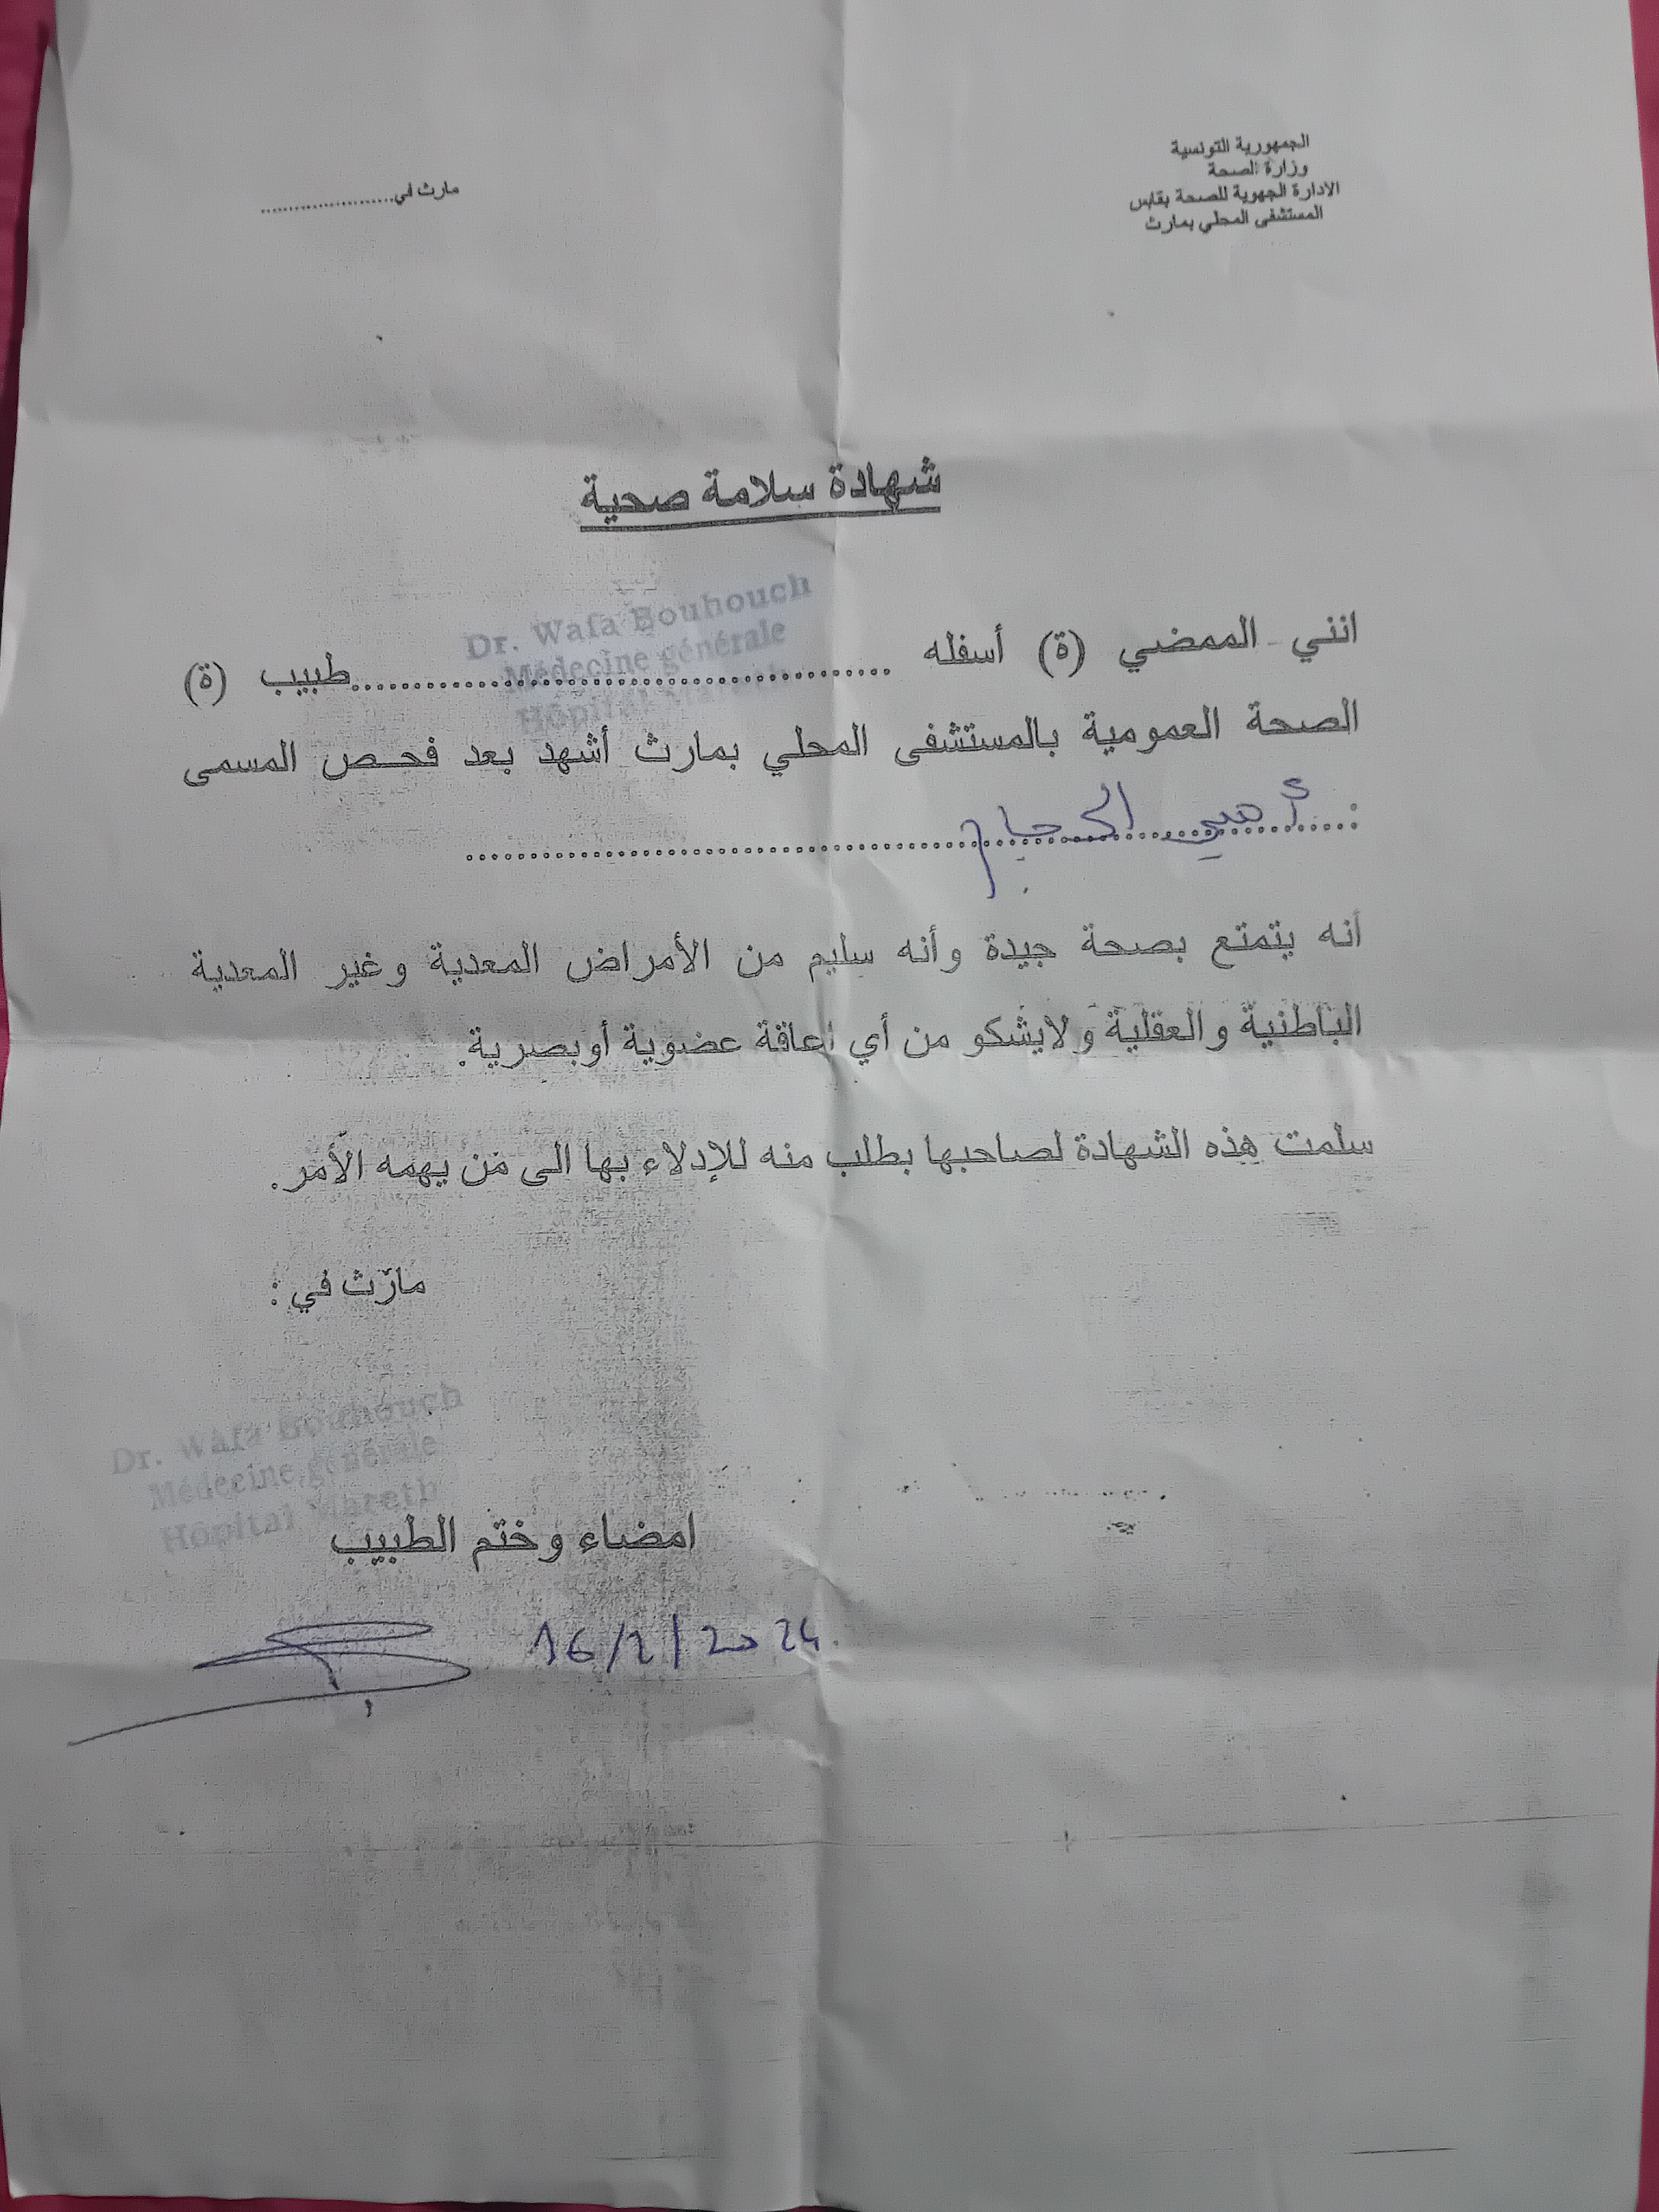 الجمهورية التونسية
وزارة الصحة
الادارة الجهوية للصحة بقابس
المستشفى المحلي بمارث
مارث في.......................
شهادة سلامة صحية
Dr. Wafa Bouhouch
Médecine générale
Hôpital Mareth
انني الممضي (ة) أسفله ............................................طبيب (ة)
الصحة العمومية بالمستشفى المحلي بمارث أشهد بعد فحص المسمى
: الحجام
أنه يتمتع بصحة جيدة وأنه سليم من الأمراض المعدية وغير المعدية
الباطنية والعقلية ولايشكو من أي اعاقة عضوية أوبصرية.
سلمت هذه الشهادة لصاحبها بطلب منه للإدلاء بها الى من يهمه الأمر.
مارث في :
Dr. Wafa Bouhouch
Médecine générale
Hôpital Mareth
امضاء وختم الطبيب
16/2/2024